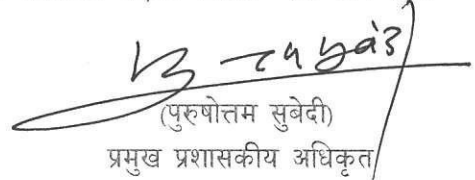 (पुरुषोत्तम सुबेदी)
प्रमुख प्रशासकीय अधिकृत